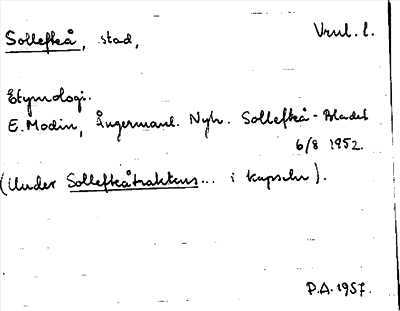 Sollefteå, stad,
Etymologi.
E. Modin, Ångermanl. Nyh. Sollefteå-Bladet
6/8 1952.
(Under Sollefteåtraktens... i kapseln).
P.A. 1957.